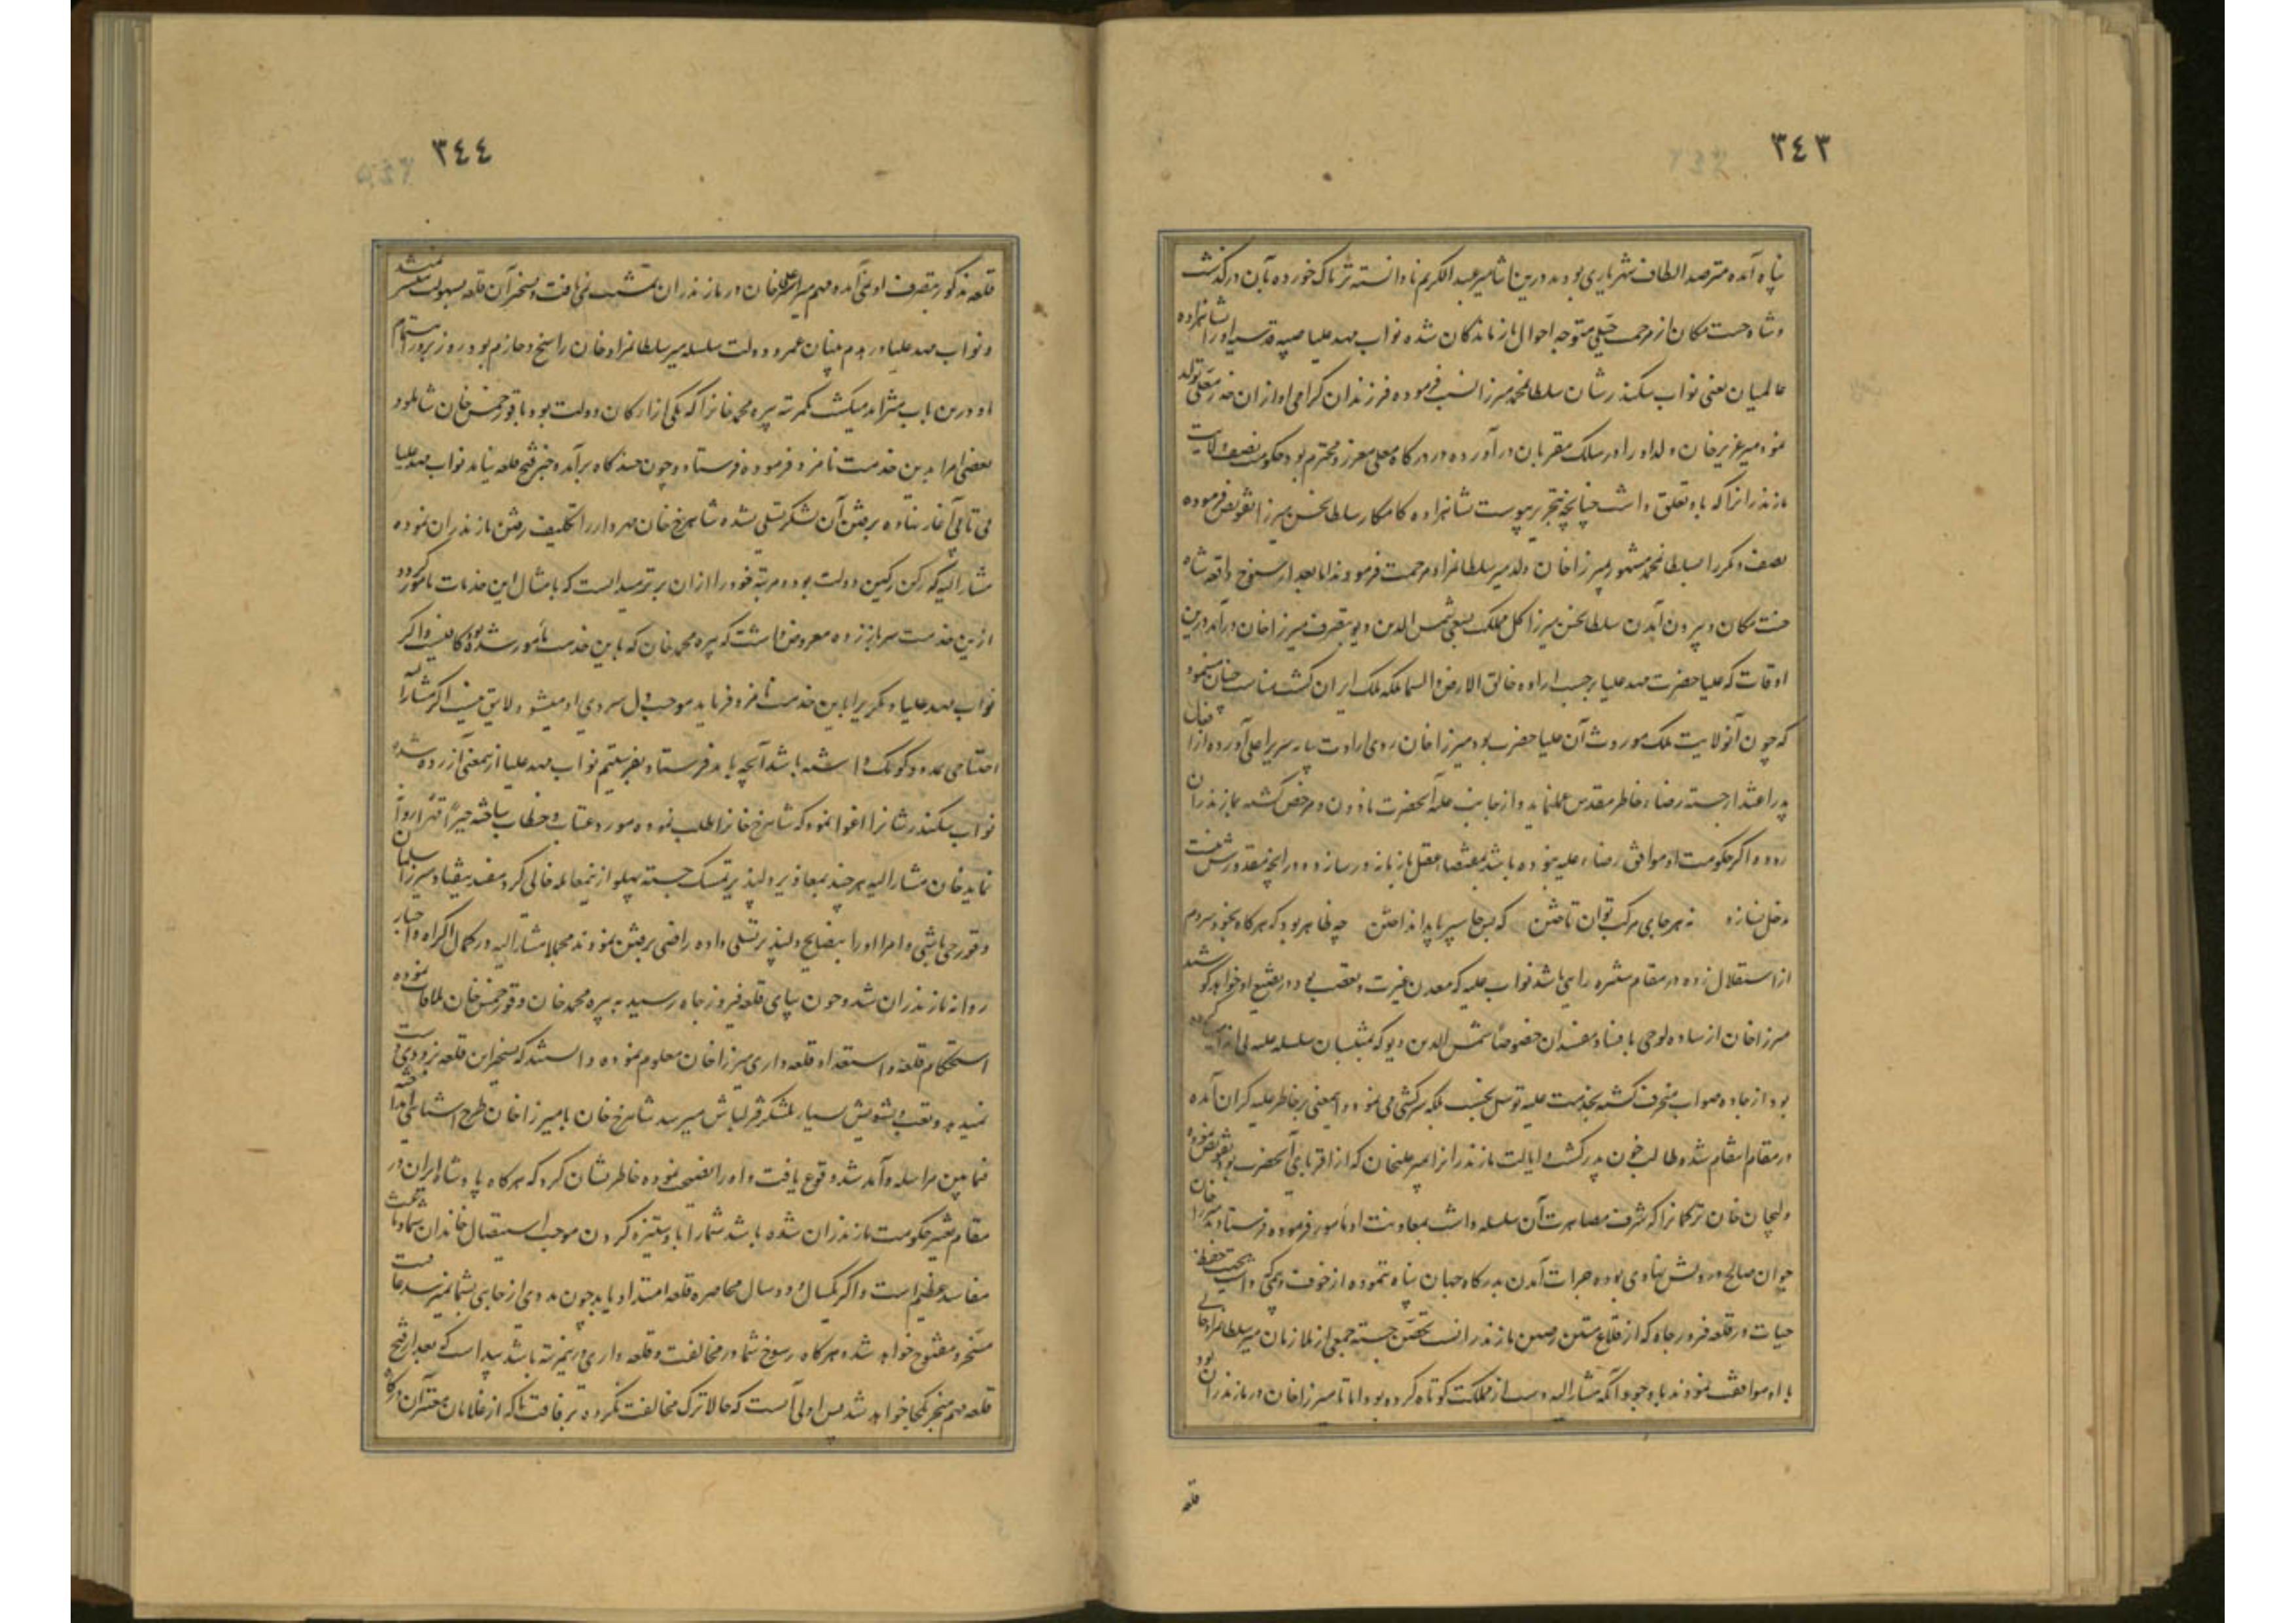 ٣٤٣
پناه آمده مترصد الطاف شهریاری بودند درین اثنا میر عبد الکریم نادانسته تریاک خورده بآن درگذشت
و شاه جنت مکان از مرحمت جبلی متوجه احوال بازماندگان شده نواب مهد علیا صبیه قدسیه او را بشاهزاده
عالمیان یعنی نواب سکندر شان سلطان محمد میرزا نسبت فرموده فرزندان گرامی او ازان مخدره معلی تولد
نمود میر عزیز خان ولد او را در سلک مقربان در آورده در درگاه معلی معزز و محترم بود حکومت نصف ولایت
مازندرانرا که باو تعلق داشت چنانچه بتحریر پیوست بشاهزاده کامکار سلطان حسن میرزا تفویض فرموده
نصف دیگر را بسلطان محمد مشهور بمیرزا خان ولد میر سلطان مراد مرحمت فرمودند اما بعد از سنوح واقعه شاه
جنت مکان و بیرون آمدن سلطان حسن میرزا کل مملکت بسعی شمس الدین دیو بتصرف میرزا خان درآمد درین
اوقات که علیا حضرت مهد علیا برحسب اراده خالق الارض والسما ملکه ملک ایران گشت مناسب چنان مینمود
که چون آنولایت ملک موروث آن علیا حضرت بود میرزا خان روی ارادت بپایه سریر اعلی آورده از افعال
پدر اعتذار جسته رضاء خاطر مقدس علیه نماید و از جانب علیه آنحضرت ماذون و مرخص گشته بمازندران
رود و اگر حکومت او موافق رضاء علیه نبوده باشد بمقتضاء عقل بازمانه در سازد و در آنچه مقدورش نیست
دخل نسازد نه هر جای مرکب توان تاختن که بس جا سپر باید انداختن چه ظاهر بود که هر گاه بخود سر دم
از استقلال زده در مقام ستیزه رایی باشد نواب علیه که معدن غیرت و تعصب بود در تضییع او خواهد کوشید
میرزا خان از ساده لوحی بافساد مفسدان خصوصاً شمس الدین دیو که
بود از جاده صواب منحرف گشته بخدمت علیه توسل نجست بلکه سرکشی می نمود و اینمعنی بر خاطر علیه گران آمده
در مقام انتقام شد و طالب خون پدر گشت و ایالت مازندرانرا بمیر علیخان که از اقربای آنحضرت بود تفویض نموده
ولیجان خان ترکمانرا که شرف مصاهرت آن سلسله داشت بمعاونت او مأمور فرموده فرستاد میرزا خان
جوان صالح درویش نهادی بوده جرات آمدن بدرگاه جهان پناه ننموده از خوفت و بیمی که داشت بجهت حفظ
حیات در قلعه فیروزجاه که از قلاع متین رصین مازندرانست تحصن جسته جمعی از ملازمان میر سلطان مراد خانی
با او موافقت نمودند باوجود آنکه مشار الیه دست از مملکت کوتاه کرده بود اما تا میرزا خان در مازندران بود
قلعه
٣٤٤
قلعه مذکور بتصرف اولیا آمده مهم میر علی خان در مازندران تمشیت نمی یافت و تسخیر آن قلعه بسهولت میسر نمیشد
و نواب مهد علیا در هدم بنیان عمر و دولت سلسله میر سلطان مراد خان راسخ و جازم بود و روز بروز اهتمام
او درین باب متزاید میگشت یکمرتبه پیره محمد خانرا که یکی از ارکان دولت بود با قورخمس خان شاملو و
بعضی امرا بدین خدمت نامزد فرموده فرستاد و چون چند گاه برآمد و خبر فتح قلعه نیامد نواب مهد علیا
بی تابی آغاز نهاده برفتن آن لشکر تسلی نشده شاهرخ خان مهردار را تکلیف رفتن مازندران نموده
مشار الیه که رکن رکین دولت بود و مرتبه خود را ازان برتر میدانست که بامثال این خدمات مامور گردد
ازین خدمت سر باز زده معروض داشت که پیره محمد خان که باین خدمت مأمور شده بود کافیست و اگر
نواب مهد علیا دیگر یرا باین خدمت نامزد فرماید موجب دل سردی او میشود و لایق نیست اگر مشار الیه
احتیاجی بمدد و کومک داشته باشد آنچه باید فرستاد بفرستیم نواب مهد علیا از ینمعنی آزرده شده
نواب سکندر شانرا اغوا نمود که شاهرخ خانرا طلب نموده مورد عتاب و خطاب ساخته جبراً قهراً روانه
نماید خان مشار الیه هر چند بمعاذیر دلپذیر تمسک جسته پهلو از ینمعامله خالی کرد مفید نیفتاد میرزا سلمان
و قورچی باشی و امرا او را بنصایح دلپذیر تسلی داده راضی برفتن نمودند مجملا مشار الیه در کمال اکراه و اجبار
روانه مازندران شد و چون بپای قلعه فیروز جاه رسید به پیره محمد خان و قورخمس خان ملاقات نموده
استحکام قلعه و استعداد قلعه داری میرزا خان معلوم نموده دانستند که تسخیر این قلعه بزودی دست
نمیدهد و تعب و تشویش بسیار بلشکر قزلباش میرسد شاهرخ خان با میرزا خان طرح آشنایی انداخته
فیمابین مراسله و آمد شد وقوع یافت و او را نصیحت نموده خاطر نشان کرد که هر گاه پادشاه ایران در
مقام تغییر حکومت مازندران شده باشد شما را باو ستیزه کردن موجب استیصال خاندان شما و باعث
مفاسد عظیم است و اگر یکسال و دو سال محاصره قلعه امتداد یابد چون مددی از جایی بشما نمیرسد عاقبت
مسخر و مفتوح خواهد شد و هر گاه رسوخ شما در مخالفت و قلعه داری درینمرتبه باشد پیداست که بعد از فتح
قلعه مهم منجر بکجا خواهد شد پس اولی آنست که حالا ترک مخالفت کرده برفاقت ما که از غلامان معتبر آن درگاه